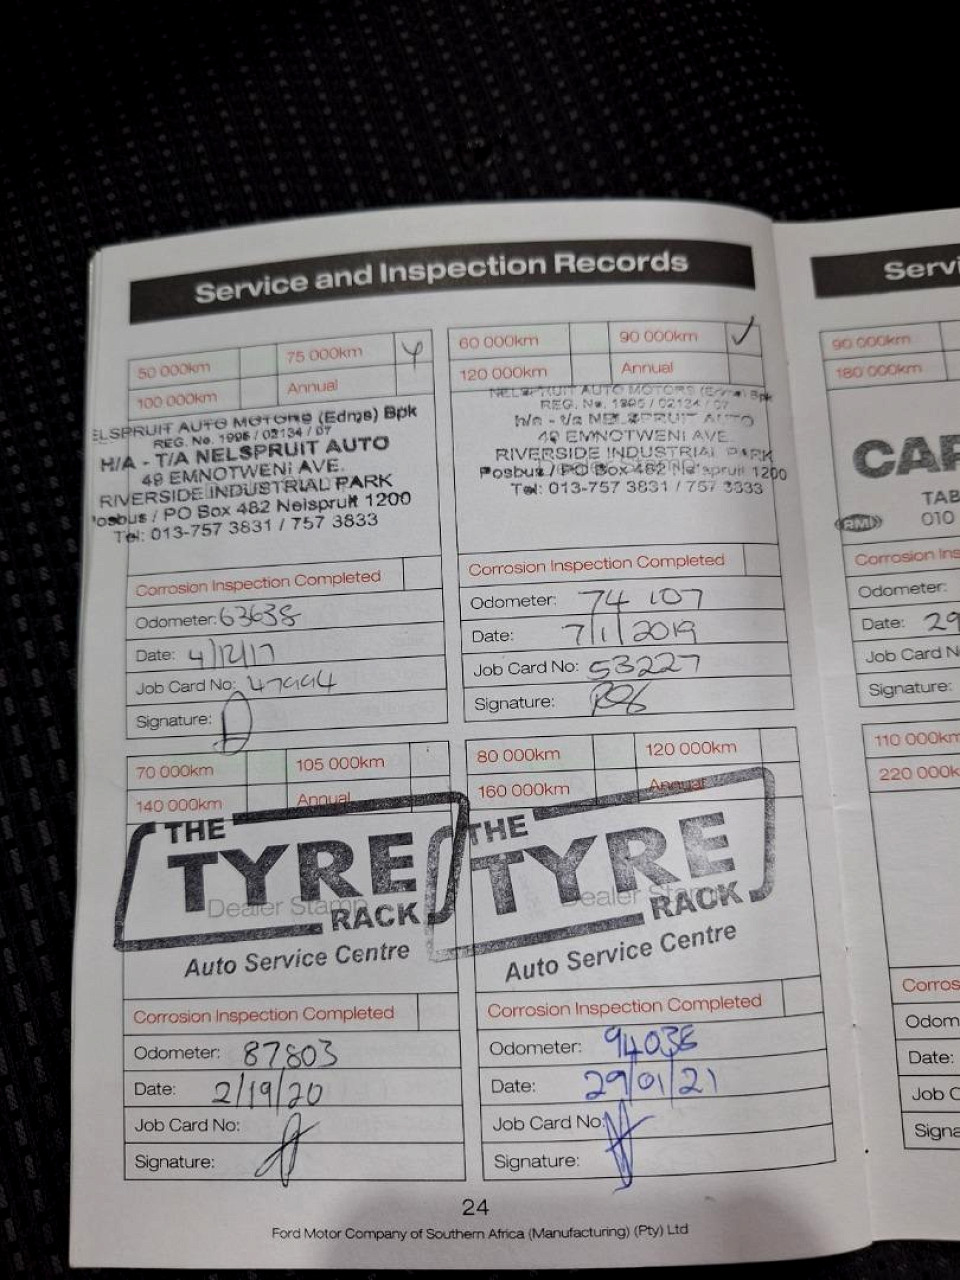 Service and Inspection Records
50 000km
75 000km
100 000km
Annual
ELSPRUIT AUTO MOTORS (Edms) Bpk
REG. No. 1996 / 02134 / 07
H/A - T/A NELSPRUIT AUTO
49 EMNOTWENI AVE.
RIVERSIDE INDUSTRIAL PARK
Posbus / PO Box 482 Nelspruit 1200
Tel: 013-757 3831 / 757 3833
Corrosion Inspection Completed
Odometer: 63638
Date: 4/12/17
Job Card No: 47994
Signature:
60 000km
90 000km ✓
120 000km
Annual
NELSPRUIT AUTO MOTORS (Edms) Bpk
REG. No. 1996 / 02134 / 07
h/a - t/a NELSPRUIT AUTO
49 EMNOTWENI AVE.
RIVERSIDE INDUSTRIAL PARK
Posbus / PO Box 482 Nelspruit 1200
Tel: 013-757 3831 / 757 3833
Corrosion Inspection Completed
Odometer: 74 107
Date: 7/1/2019
Job Card No: 53227
Signature:
70 000km
105 000km
140 000km
Annual
THE
TYRE
Dealer Stamp
RACK
Auto Service Centre
Corrosion Inspection Completed
Odometer: 87803
Date: 2/19/20
Job Card No:
Signature:
80 000km
120 000km
160 000km
Annual
THE
TYRE
Dealer Stamp
RACK
Auto Service Centre
Corrosion Inspection Completed
Odometer: 94036
Date: 29/01/21
Job Card No:
Signature:
24
Ford Motor Company of Southern Africa (Manufacturing) (Pty) Ltd
Servi
90 000km
180 000km
CAR
TAB
RMI
010
Corrosion Ins
Odometer:
Date: 29
Job Card N
Signature:
110 000km
220 000k
Corros
Odom
Date:
Job C
Signa